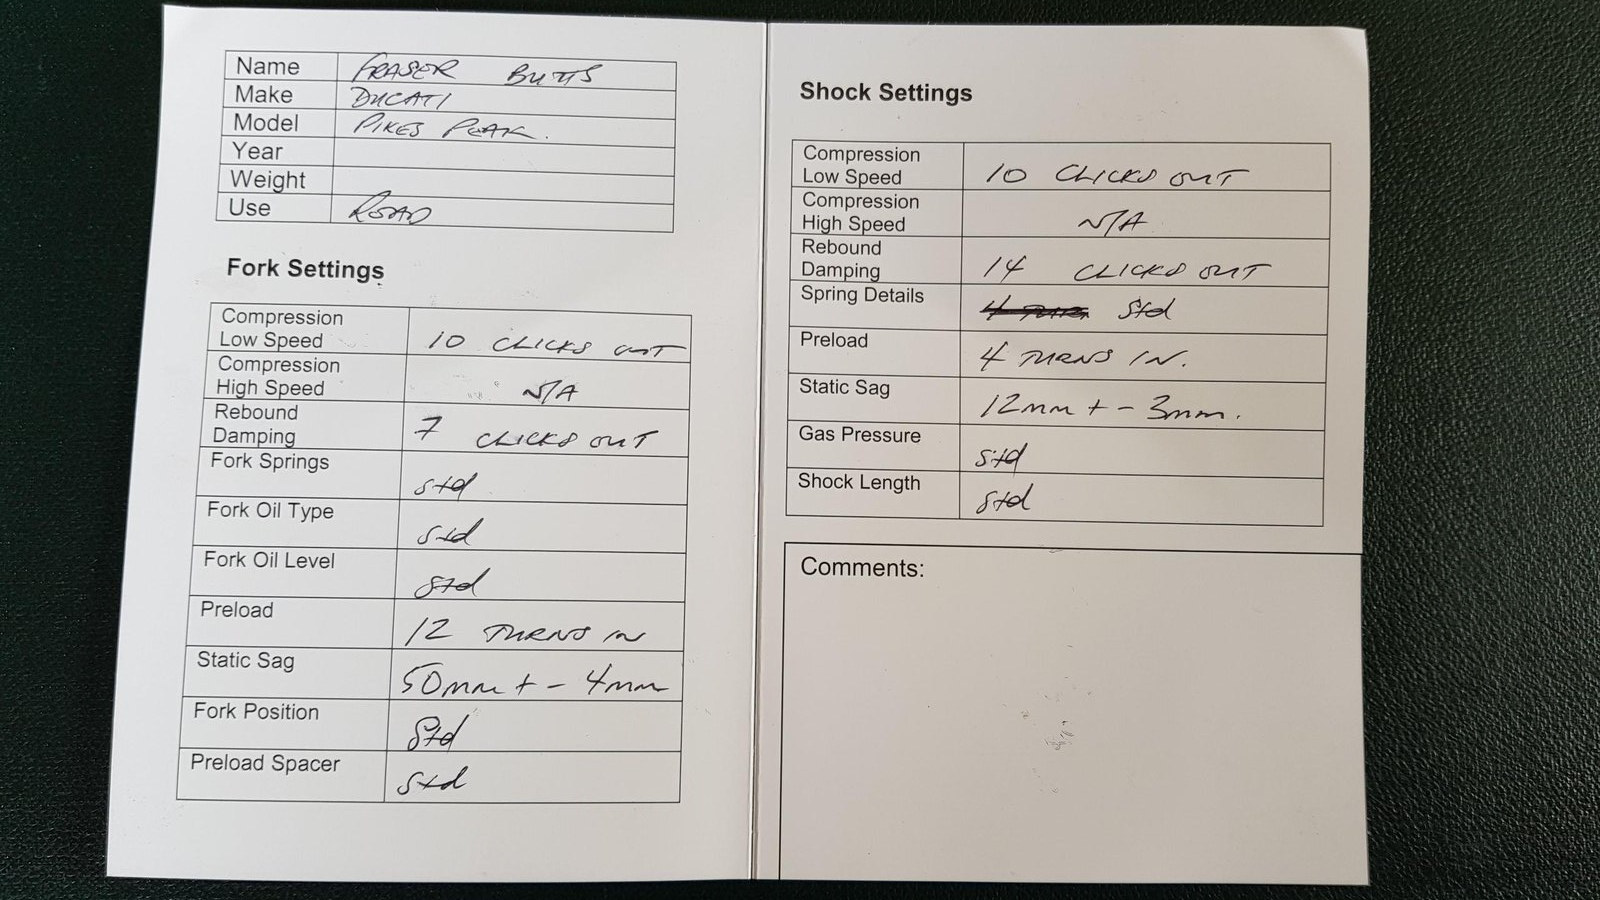 Name FRASER BUTTS
Make DUCATI
Model PIKES PEAK.
Year
Weight
Use ROAD
Fork Settings
Compression
Low Speed 10 CLICKS OUT
Compression
High Speed N/A
Rebound
Damping 7 CLICKS OUT
Fork Springs std
Fork Oil Type std
Fork Oil Level std
Preload 12 TURNS IN
Static Sag 50mm + - 4mm
Fork Position Std
Preload Spacer std
Shock Settings
Compression
Low Speed 10 CLICKS OUT
Compression
High Speed N/A
Rebound
Damping 14 CLICKS OUT
Spring Details Std
Preload 4 TURNS IN.
Static Sag 12mm + - 3mm.
Gas Pressure std
Shock Length std
Comments: